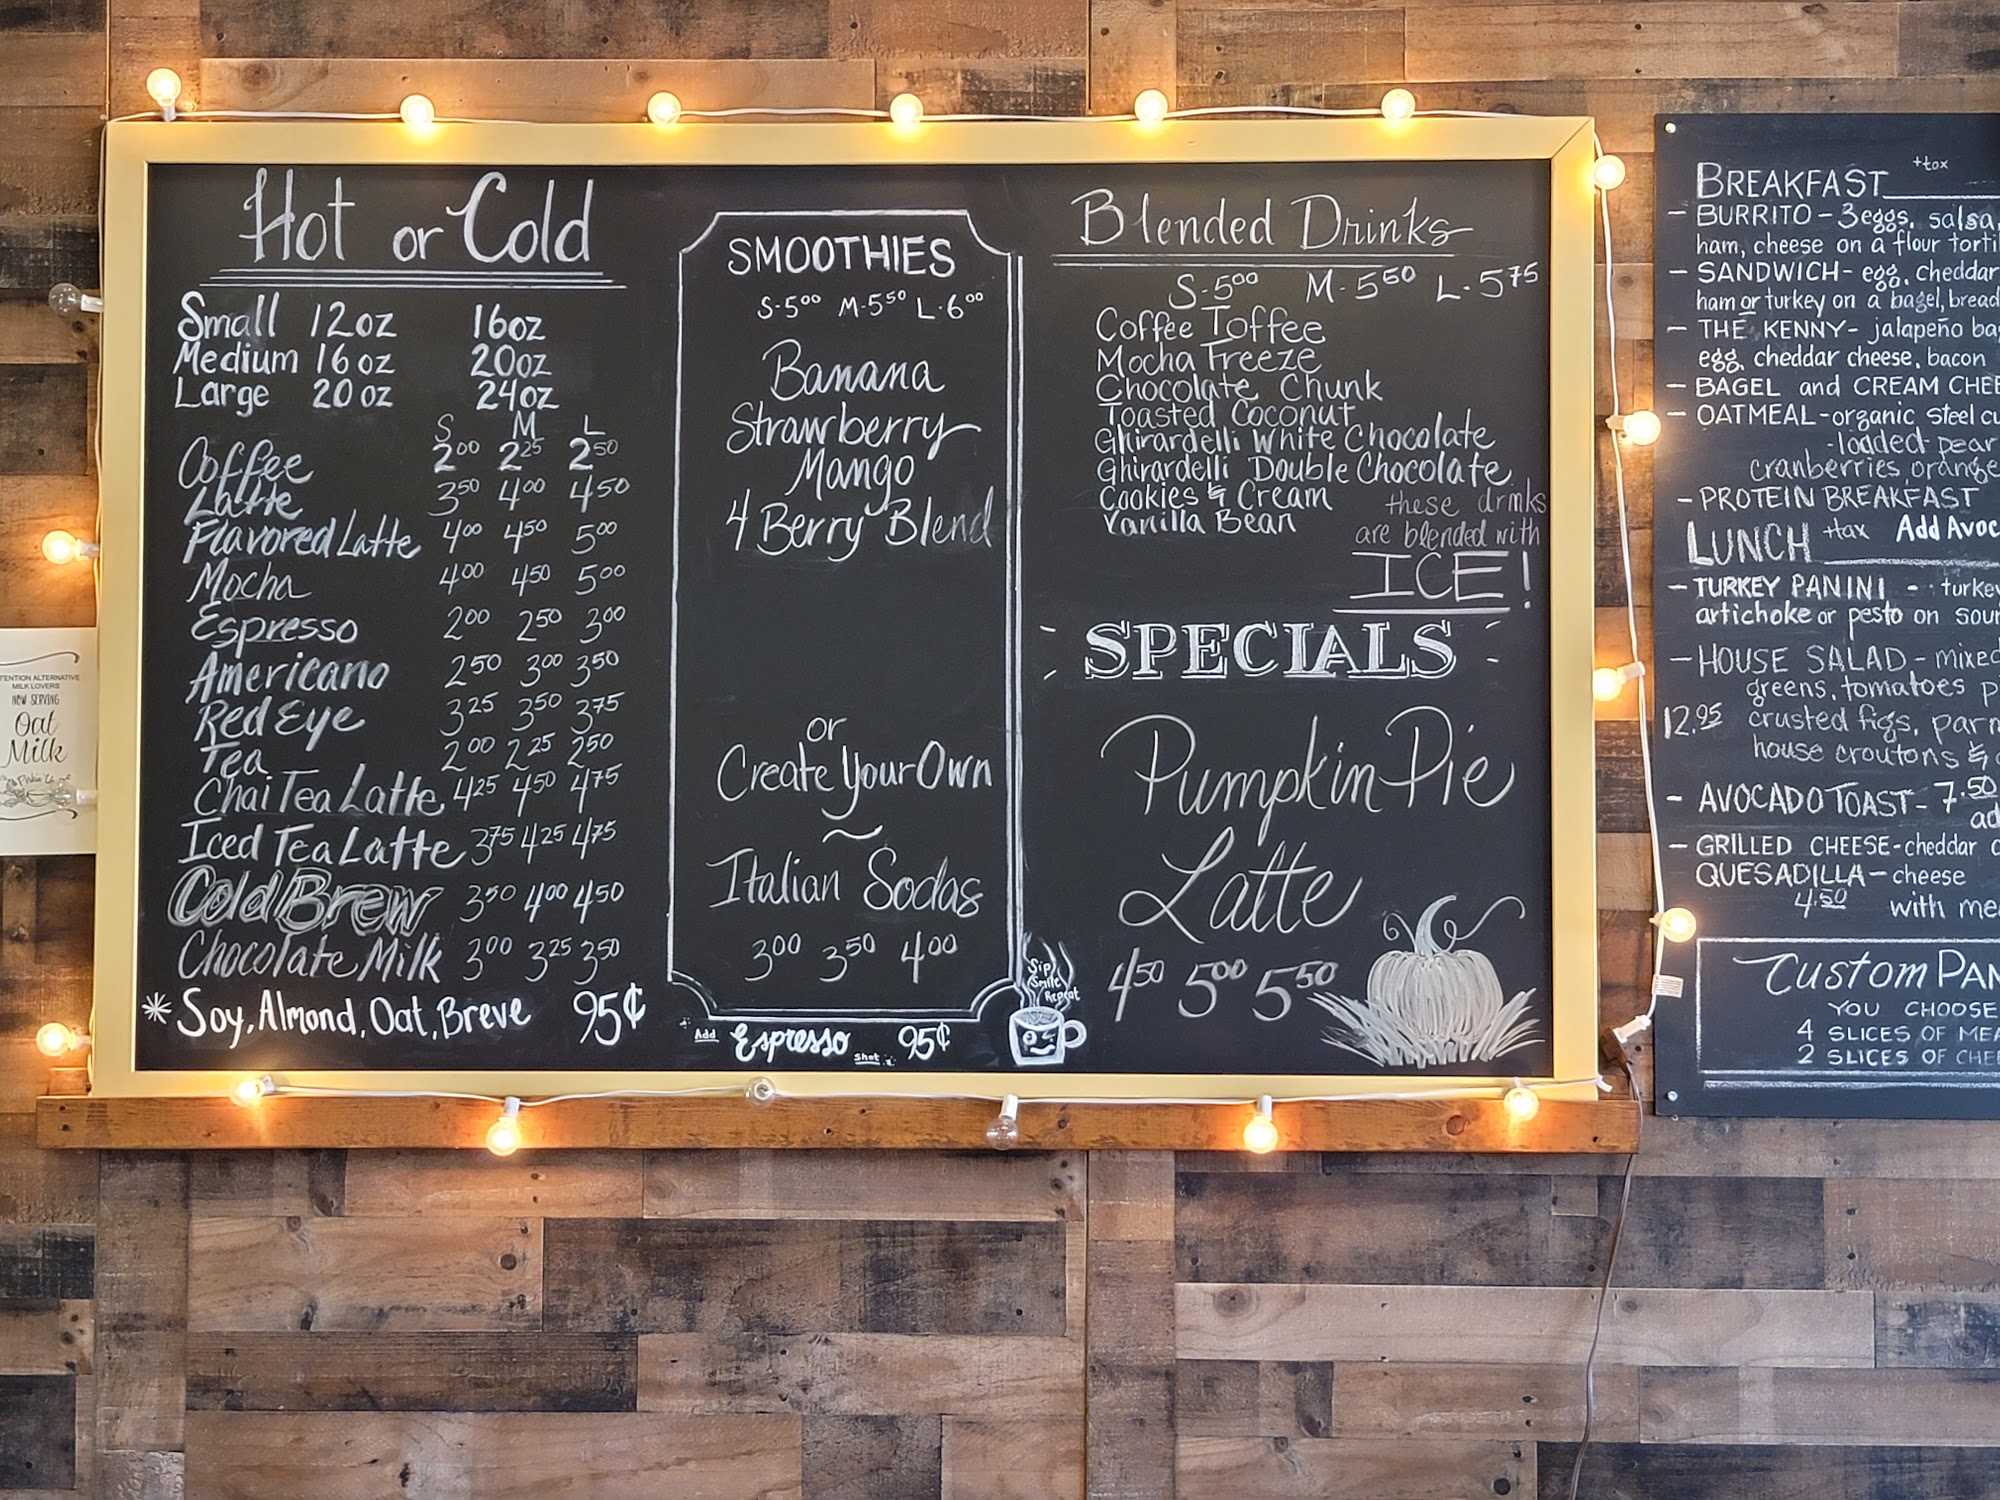 Hot or Cold
Small 12oz 16oz
Medium 16oz 20oz
Large 20oz 24oz
S M L
Coffee 2.00 2.25 2.50
Latte 3.50 4.00 4.50
Flavored Latte 4.00 4.50 5.00
Mocha 4.00 4.50 5.00
Espresso 2.00 2.50 3.00
Americano 2.50 3.00 3.50
Red Eye 3.25 3.50 3.75
Tea 2.00 2.25 2.50
Chai Tea Latte 4.25 4.50 4.75
Iced Tea Latte 3.75 4.25 4.75
Cold Brew 3.50 4.00 4.50
Chocolate Milk 3.00 3.25 3.50
* Soy, Almond, Oat, Breve 95¢
SMOOTHIES
S.5.00 M.5.50 L.6.00
Banana
Strawberry
Mango
4 Berry Blend
or
Create Your Own
~
Italian Sodas
3.00 3.50 4.00
Add Espresso Shot 95¢
Sip
Smile
Repeat
Blended Drinks
S.5.00 M.5.50 L.5.75
Coffee Toffee
Mocha Freeze
Chocolate Chunk
Toasted Coconut
Ghirardelli White Chocolate
Ghirardelli Double Chocolate
Cookies & Cream
Vanilla Bean
these drinks
are blended with
ICE!
- SPECIALS -
Pumpkin Pie
Latte
4.50 5.00 5.50
BREAKFAST +tax
- BURRITO - 3eggs, salsa,
ham, cheese on a flour
- SANDWICH - egg, cheddar
ham or turkey on a bagel, bread
- THE KENNY - jalapeño
egg, cheddar cheese, bacon
- BAGEL and CREAM
- OATMEAL - organic steel
- loaded - pear
cranberries, orange
- PROTEIN BREAKFAST
LUNCH +tax Add
- TURKEY PANINI - turkey
artichoke or pesto on
- HOUSE SALAD - mixed
greens, tomatoes
12.95 crusted figs,
house croutons &
- AVOCADO TOAST - 7.50
- GRILLED CHEESE - cheddar
QUESADILLA - cheese
4.50 with
CUSTOM
YOU CHOOSE
4 SLICES OF
2 SLICES OF
ALTERNATIVE
MILK LOVERS
NOW SERVING
Oat
Milk